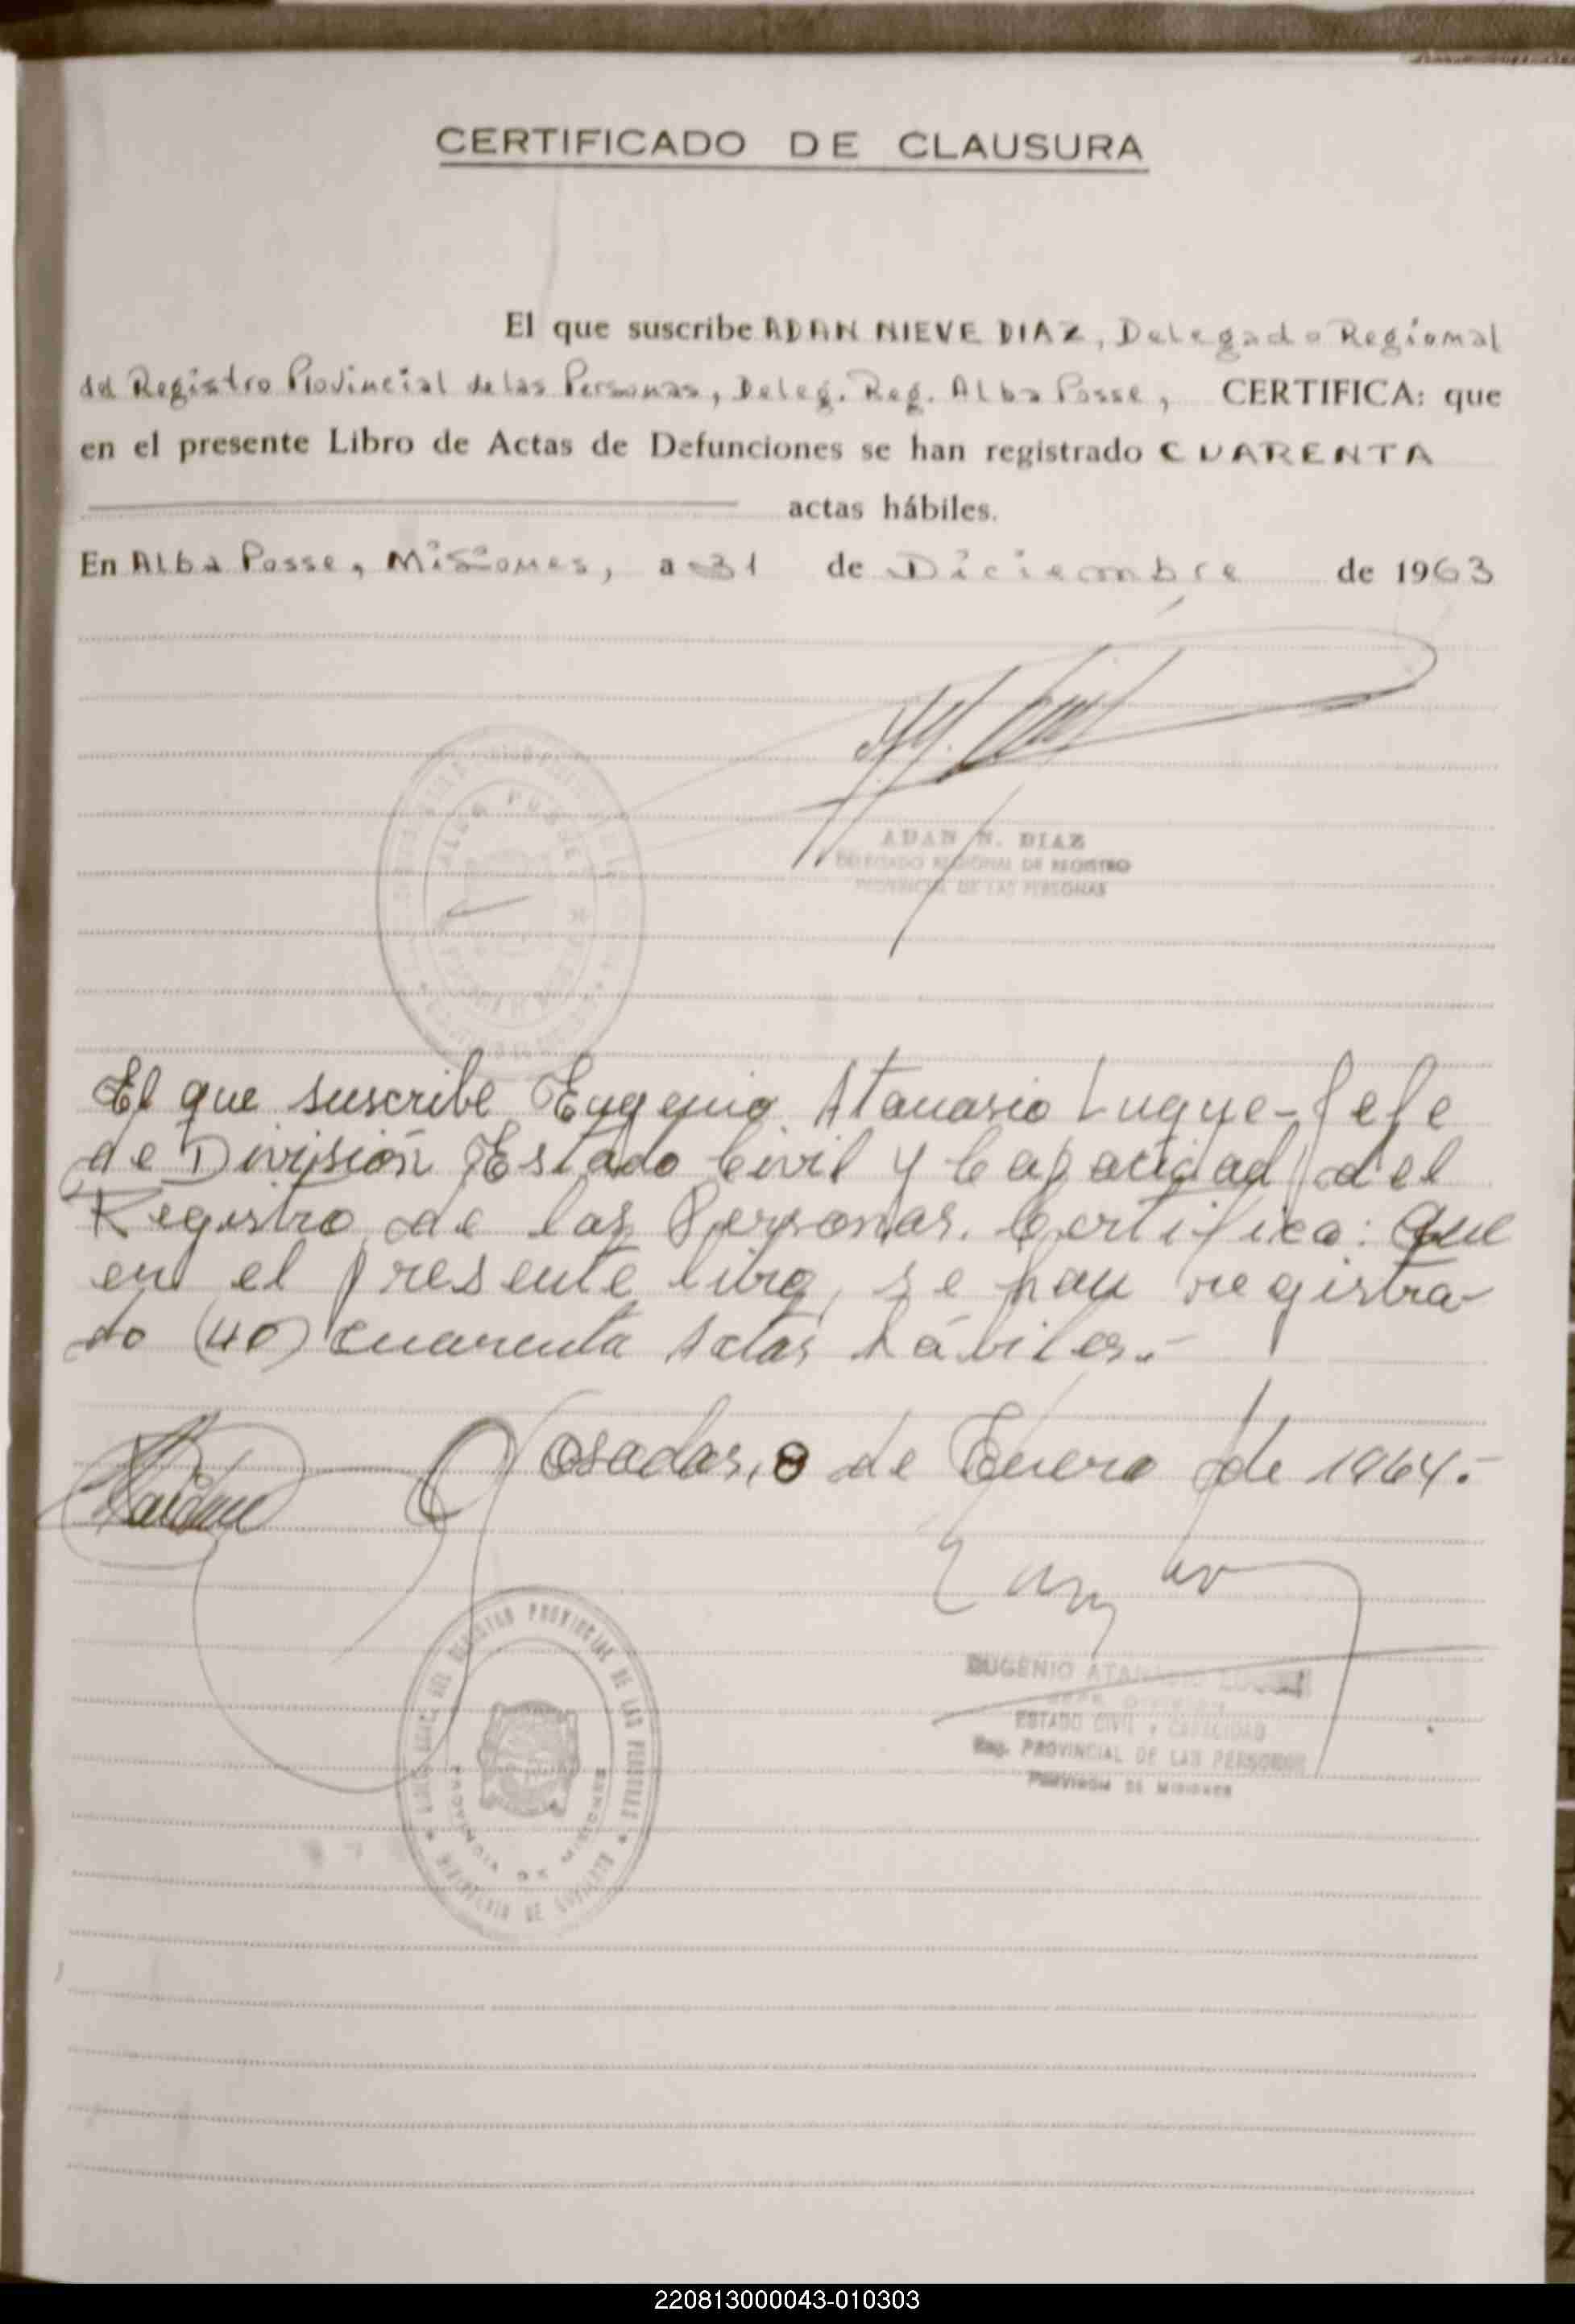 CERTIFICADO DE CLAUSURA
El que suscribe ADAN NIEVE DIAZ, Delegado Regional
del Registro Provincial de las Personas, Deleg. Reg. Alba Posse, CERTIFICA: que
en el presente Libro de Actas de Defunciones se han registrado CUARENTA
actas hábiles.
En Alba Posse, Misiones, a 31 de Diciembre de 1963
ADAN N. DIAZ
DELEGADO REGIONAL DE REGISTRO
PROVINCIAL DE LAS PERSONAS
El que suscribe Eugenio Atanasio Luque - Jefe
de División Estado Civil y Capacidad del
Registro de las Personas. Certifica: que
en el presente libro, se han registra-
do (40) cuarenta actas hábiles.-
Posadas, 8 de Enero de 1964.-
EUGENIO ATANASIO LUQUE
ESTADO CIVIL Y CAPACIDAD
Reg. PROVINCIAL DE LAS PERSONAS
PROVINCIA DE MISIONES
DEL REGISTRO PROVINCIAL DE LAS PERSONAS
PROVINCIA DE MISIONES
220813000043-010303